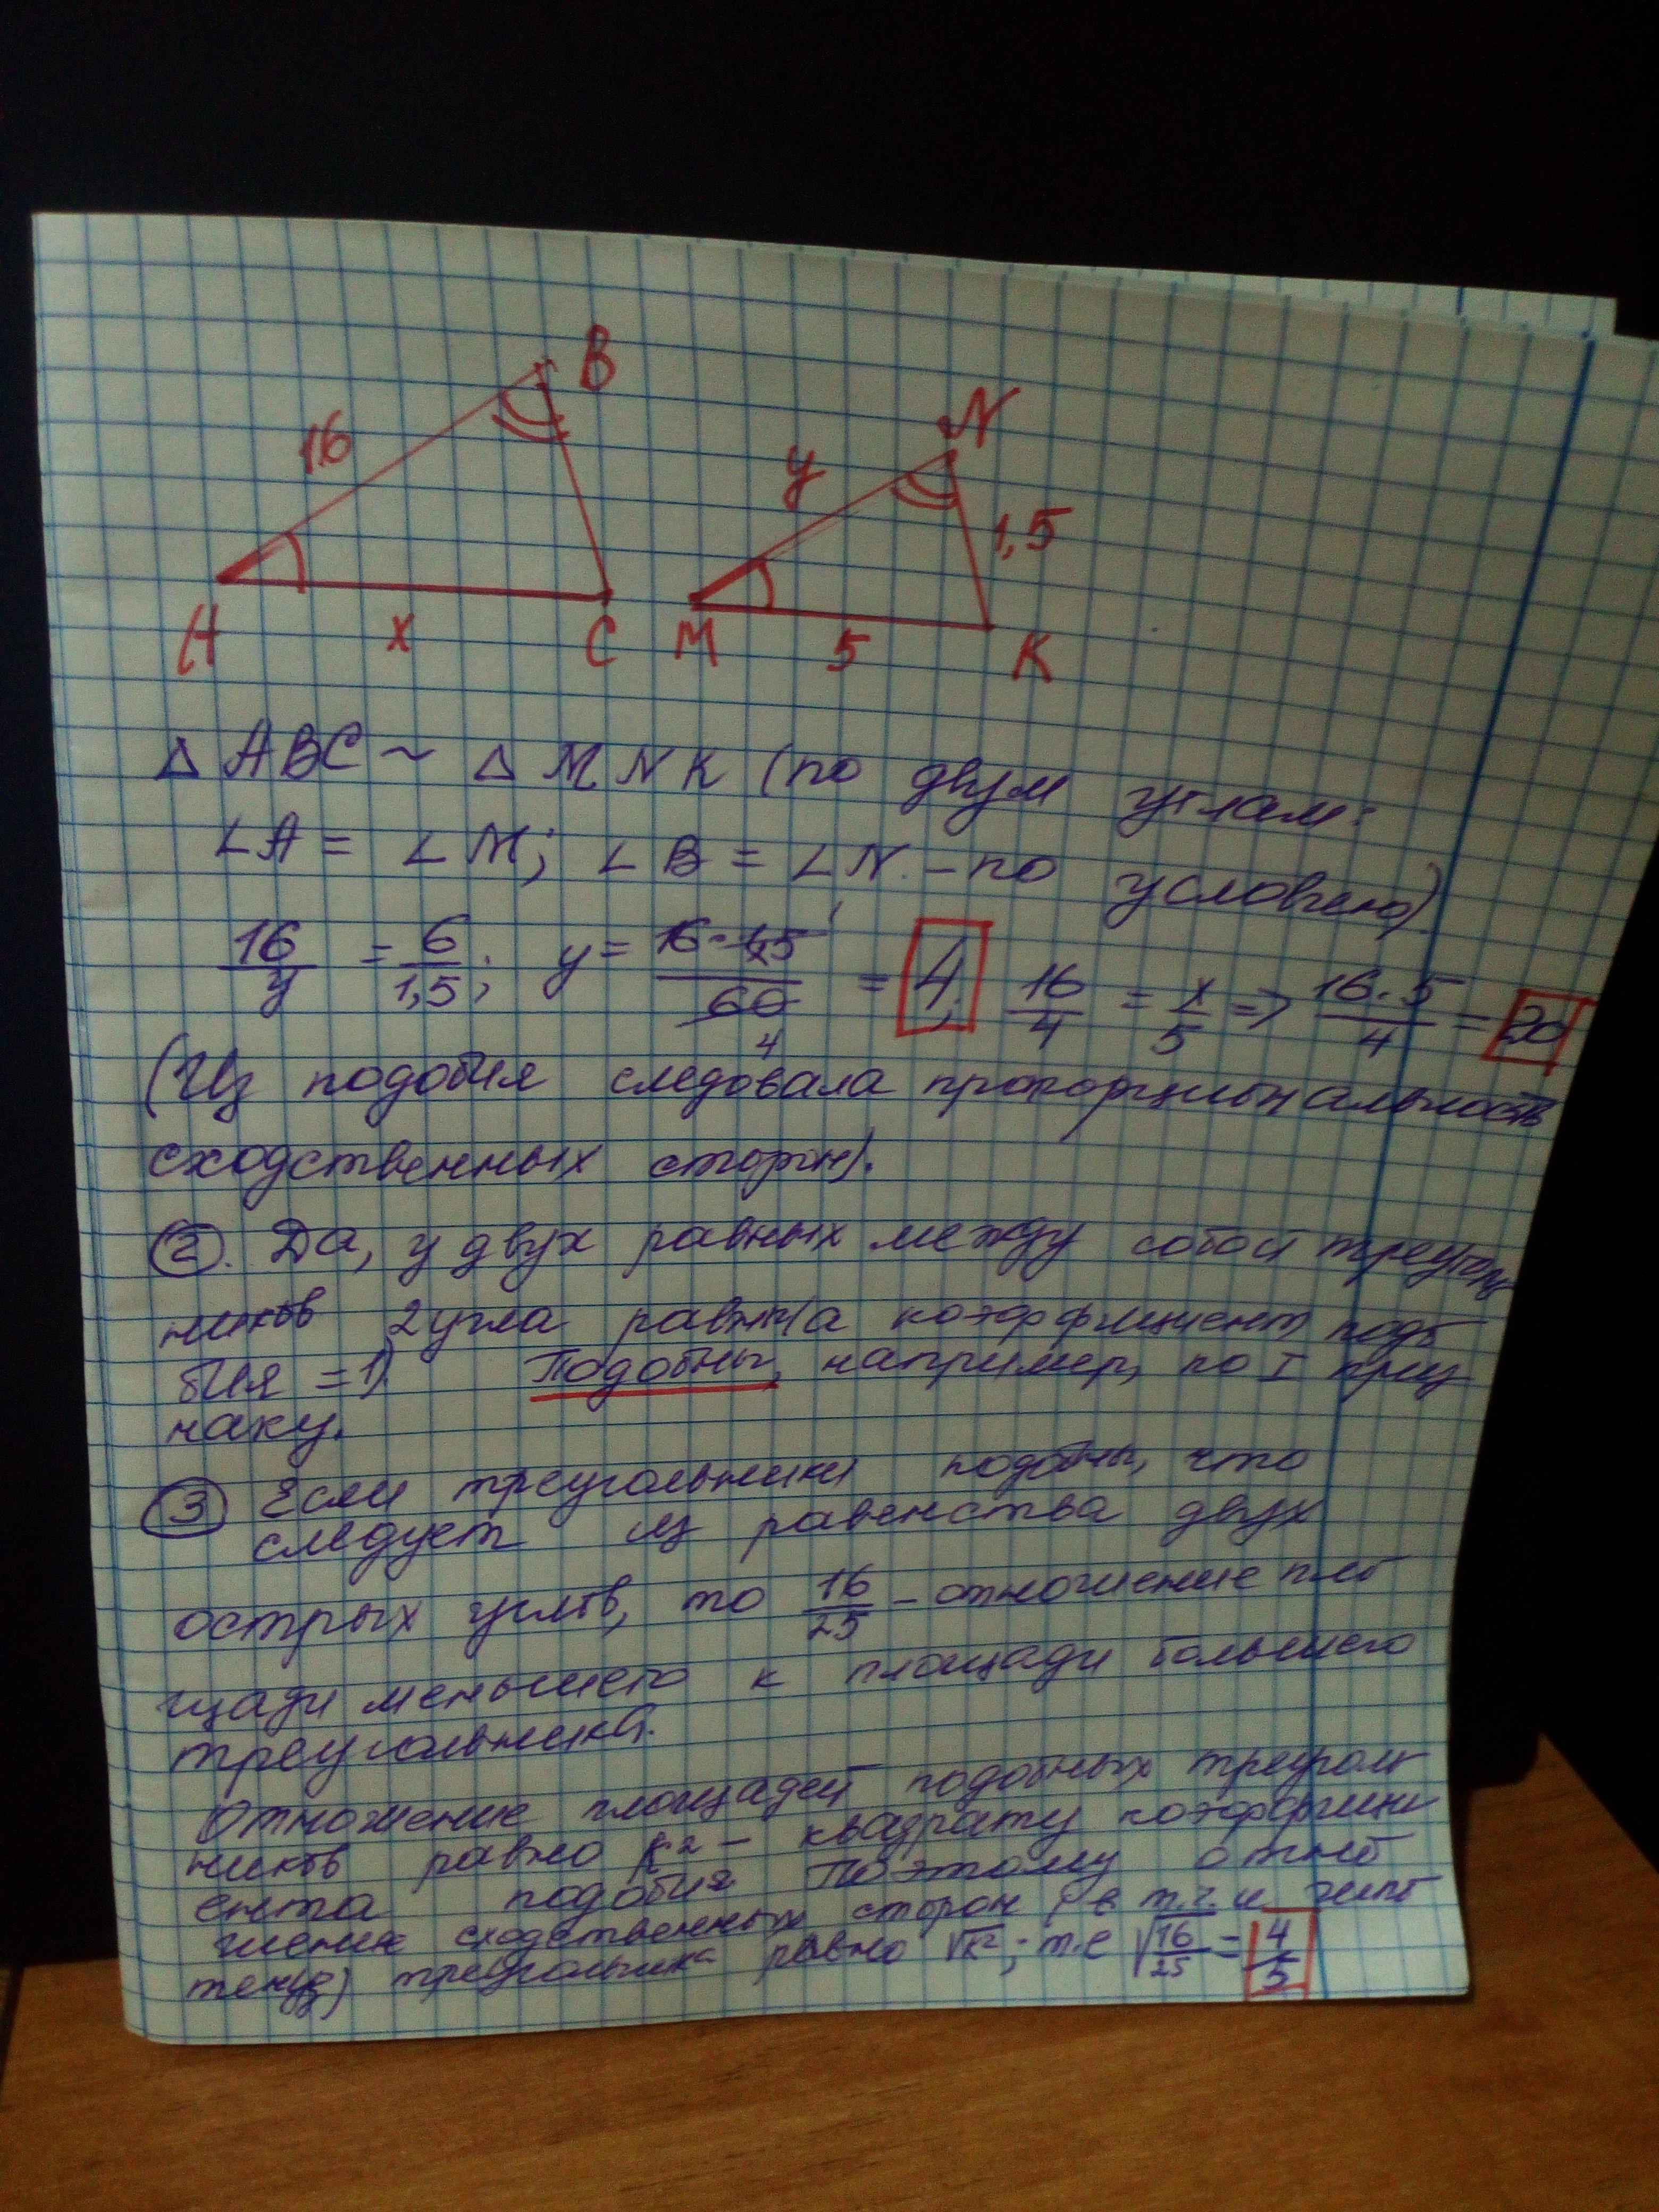 B
N
16
y
1,5
A
x
C
M
5
K
△ ABC ~ △ MNK (по двум углам:
∠A = ∠M; ∠B = ∠N. – по условию)
16/y = 6/1,5; y = 16·1,5/60 4 = 4; 16/4 = x/5 => 16·5/4 = 20
(Из подобия следовала пропорциональность
сходственных сторон).
② . Да, у двух равных между собой треуголь
ников 2 угла равны (а коэффициент подо
бия = 1) Подобны, например, по I приз
наку.
③ Если треугольники подобны, что
следует из равенства двух
острых углов, то 16/25 – отношение пло
щади меньшего к площади большего
треугольника.
Отношение площадей подобных треуголь
ников равно k² – квадрату коэффици
ента подобия. Поэтому отно
шение сходственных сторон (в т.ч. и гипо
тенуз) треугольника равно √k²; т.е √16/25 = 4/5